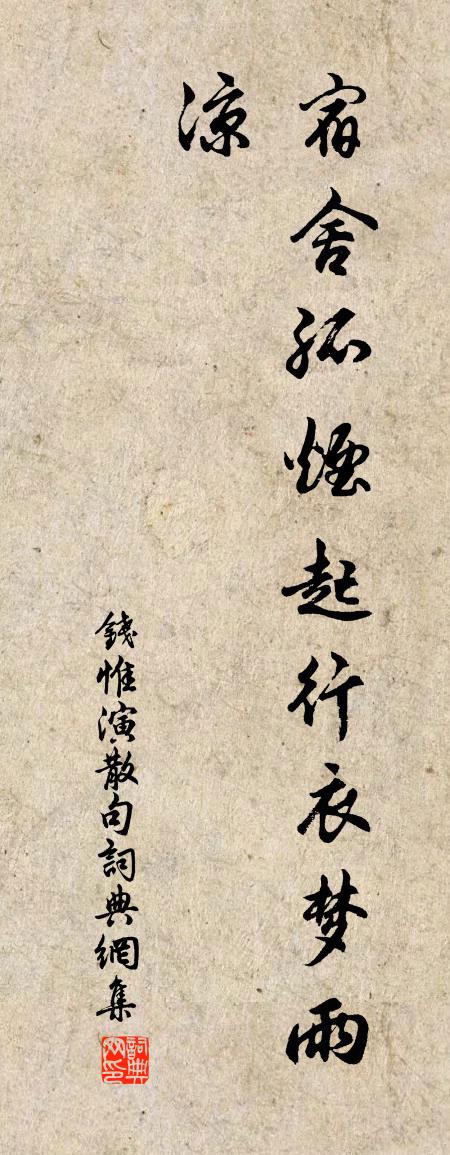 宿舍孤煙起行衣梦雨
凉
錢惟演散句詞典網集
詞典网印